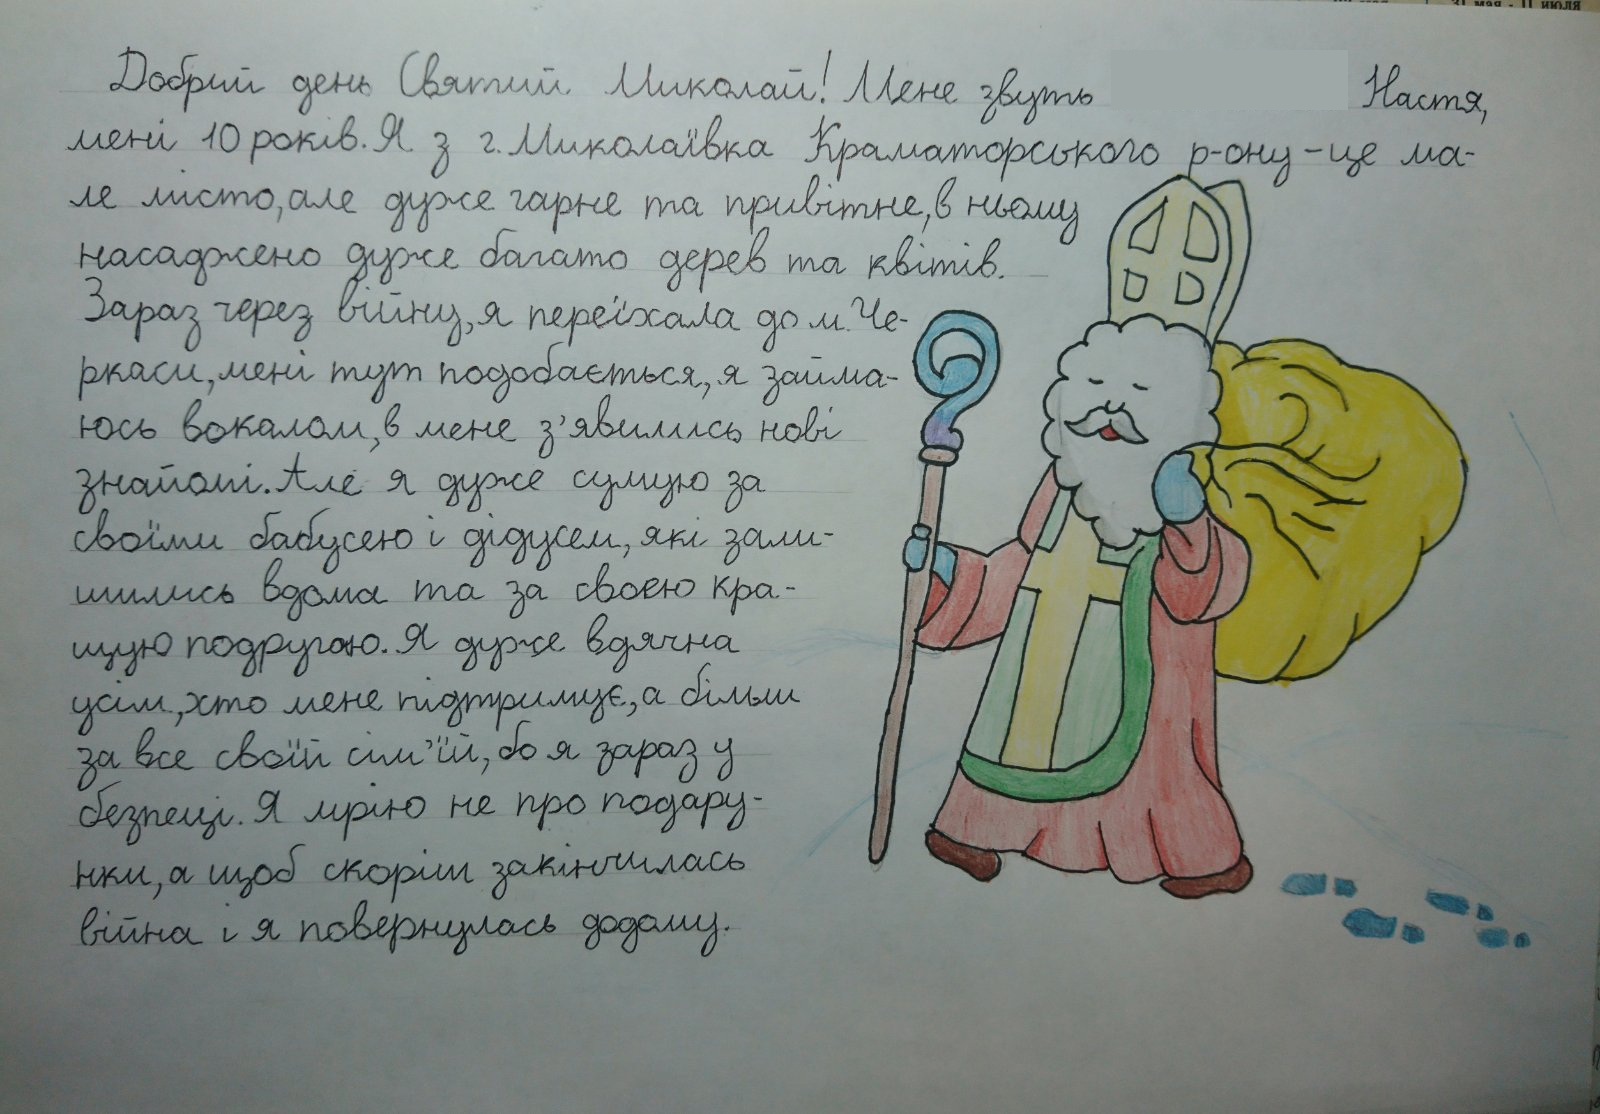 31 мая - 11 июля
Добрий день Святий Миколай! Мене звуть Настя,
мені 10 років. Я з г. Миколаївка Краматорського р-ону - це ма-
ле місто, але дуже гарне та привітне, в ньому
насаджено дуже багато дерев та квітів.
Зараз через війну, я переїхала до м. Че-
ркаси, мені тут подобається, я займа-
юсь вокалом, в мене з'явились нові
знайомі. Але я дуже сумую за
своїми бабусею і дідусем, які зали-
шились вдома та за своєю кра-
щую подругою. Я дуже вдячна
усім, хто мене підтримує, а більш
за все своїй сім'їй, бо я зараз у
безпеці. Я мрію не про подару-
нки, а щоб скоріш закінчилась
війна і я повернулась додому.